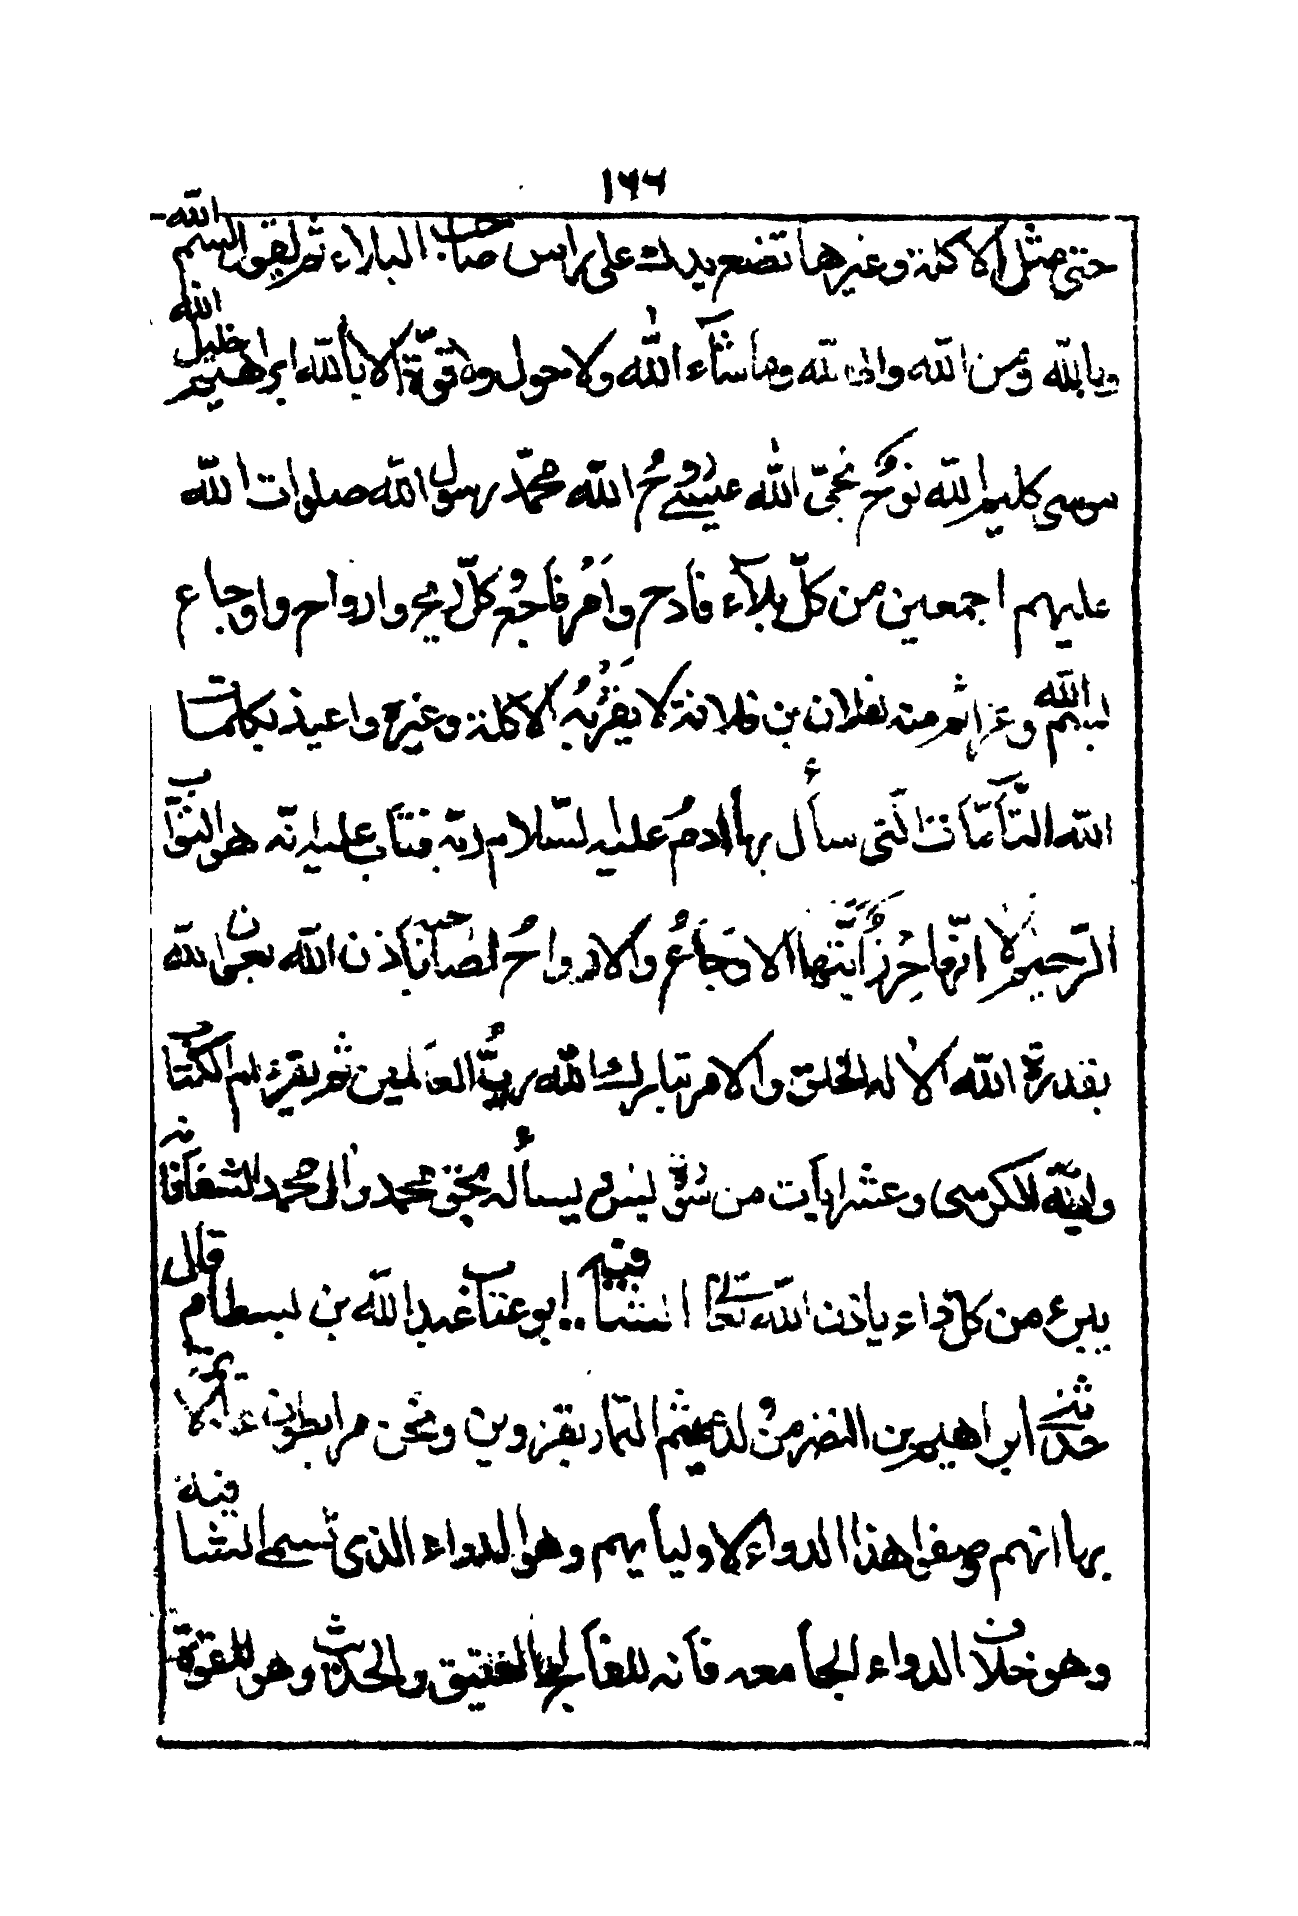 ١٦٦
حتى مثل الاكلة وغيرها تضع يدك على راس صاحب البلاء ثم تقول بسم الله
وبالله ومن الله والى الله وما شآء الله ولا حول ولا قوّة الا بالله ابراهيم خليل الله
موسى كليم الله نوح نجىّ الله عيسى روح الله محمّد رسول الله صلوات الله
عليهم اجمعين من كلّ بلآء فادح وامر فاجع وكلّ ريح وارواح واوجاع
بسم الله وعزائم منه لفلان بن فلانة لا يقربه الاكلة وغيره واعيذه بكلمات
الله التّآمّات الّتى سأل بها ادم عليه السّلام ربّه فتاب عليه انّه هو التوّاب
الرّحيم الا انّها حرز ايّتها الاوجاع والارواح لصاحبه باذن الله بعون الله
بقدرة الله الا له الخلق والامر تبارك الله ربّ العالمين ثم تقرء ام الكتاب
واية الكرسى وعشر ايات من سورة يس وتسأله بحق محمد وال محمد الشفآء فانه
يبرء من كل داء باذن الله تعالى الشافيه .. ابو عتاب عبد الله بن بسطام قال
حدثنى ابراهيم بن النضر من ولد ميثم التمار بقزوين ونحن مرابطون عن الائمة
بها انهم وصفوا هذا الدواء لاوليائهم وهو الدواء الذى تسمى الشافيه
وهو خلاف الدواء الجامعه فانه للفالج العتيق والحديث وهو للقوة